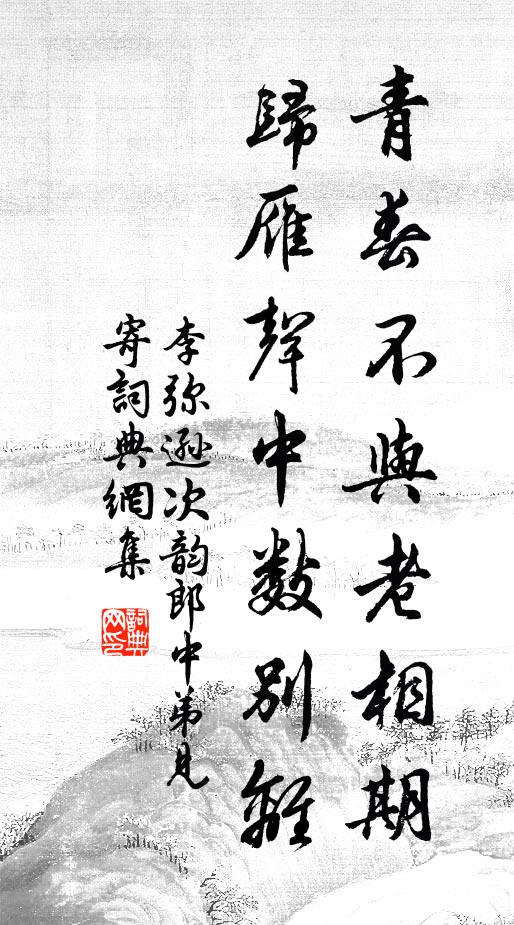 青春不與老相期
歸雁聲中數別離
李弥遜次韵郎中弟見
寄詞典網集
詞典
网印